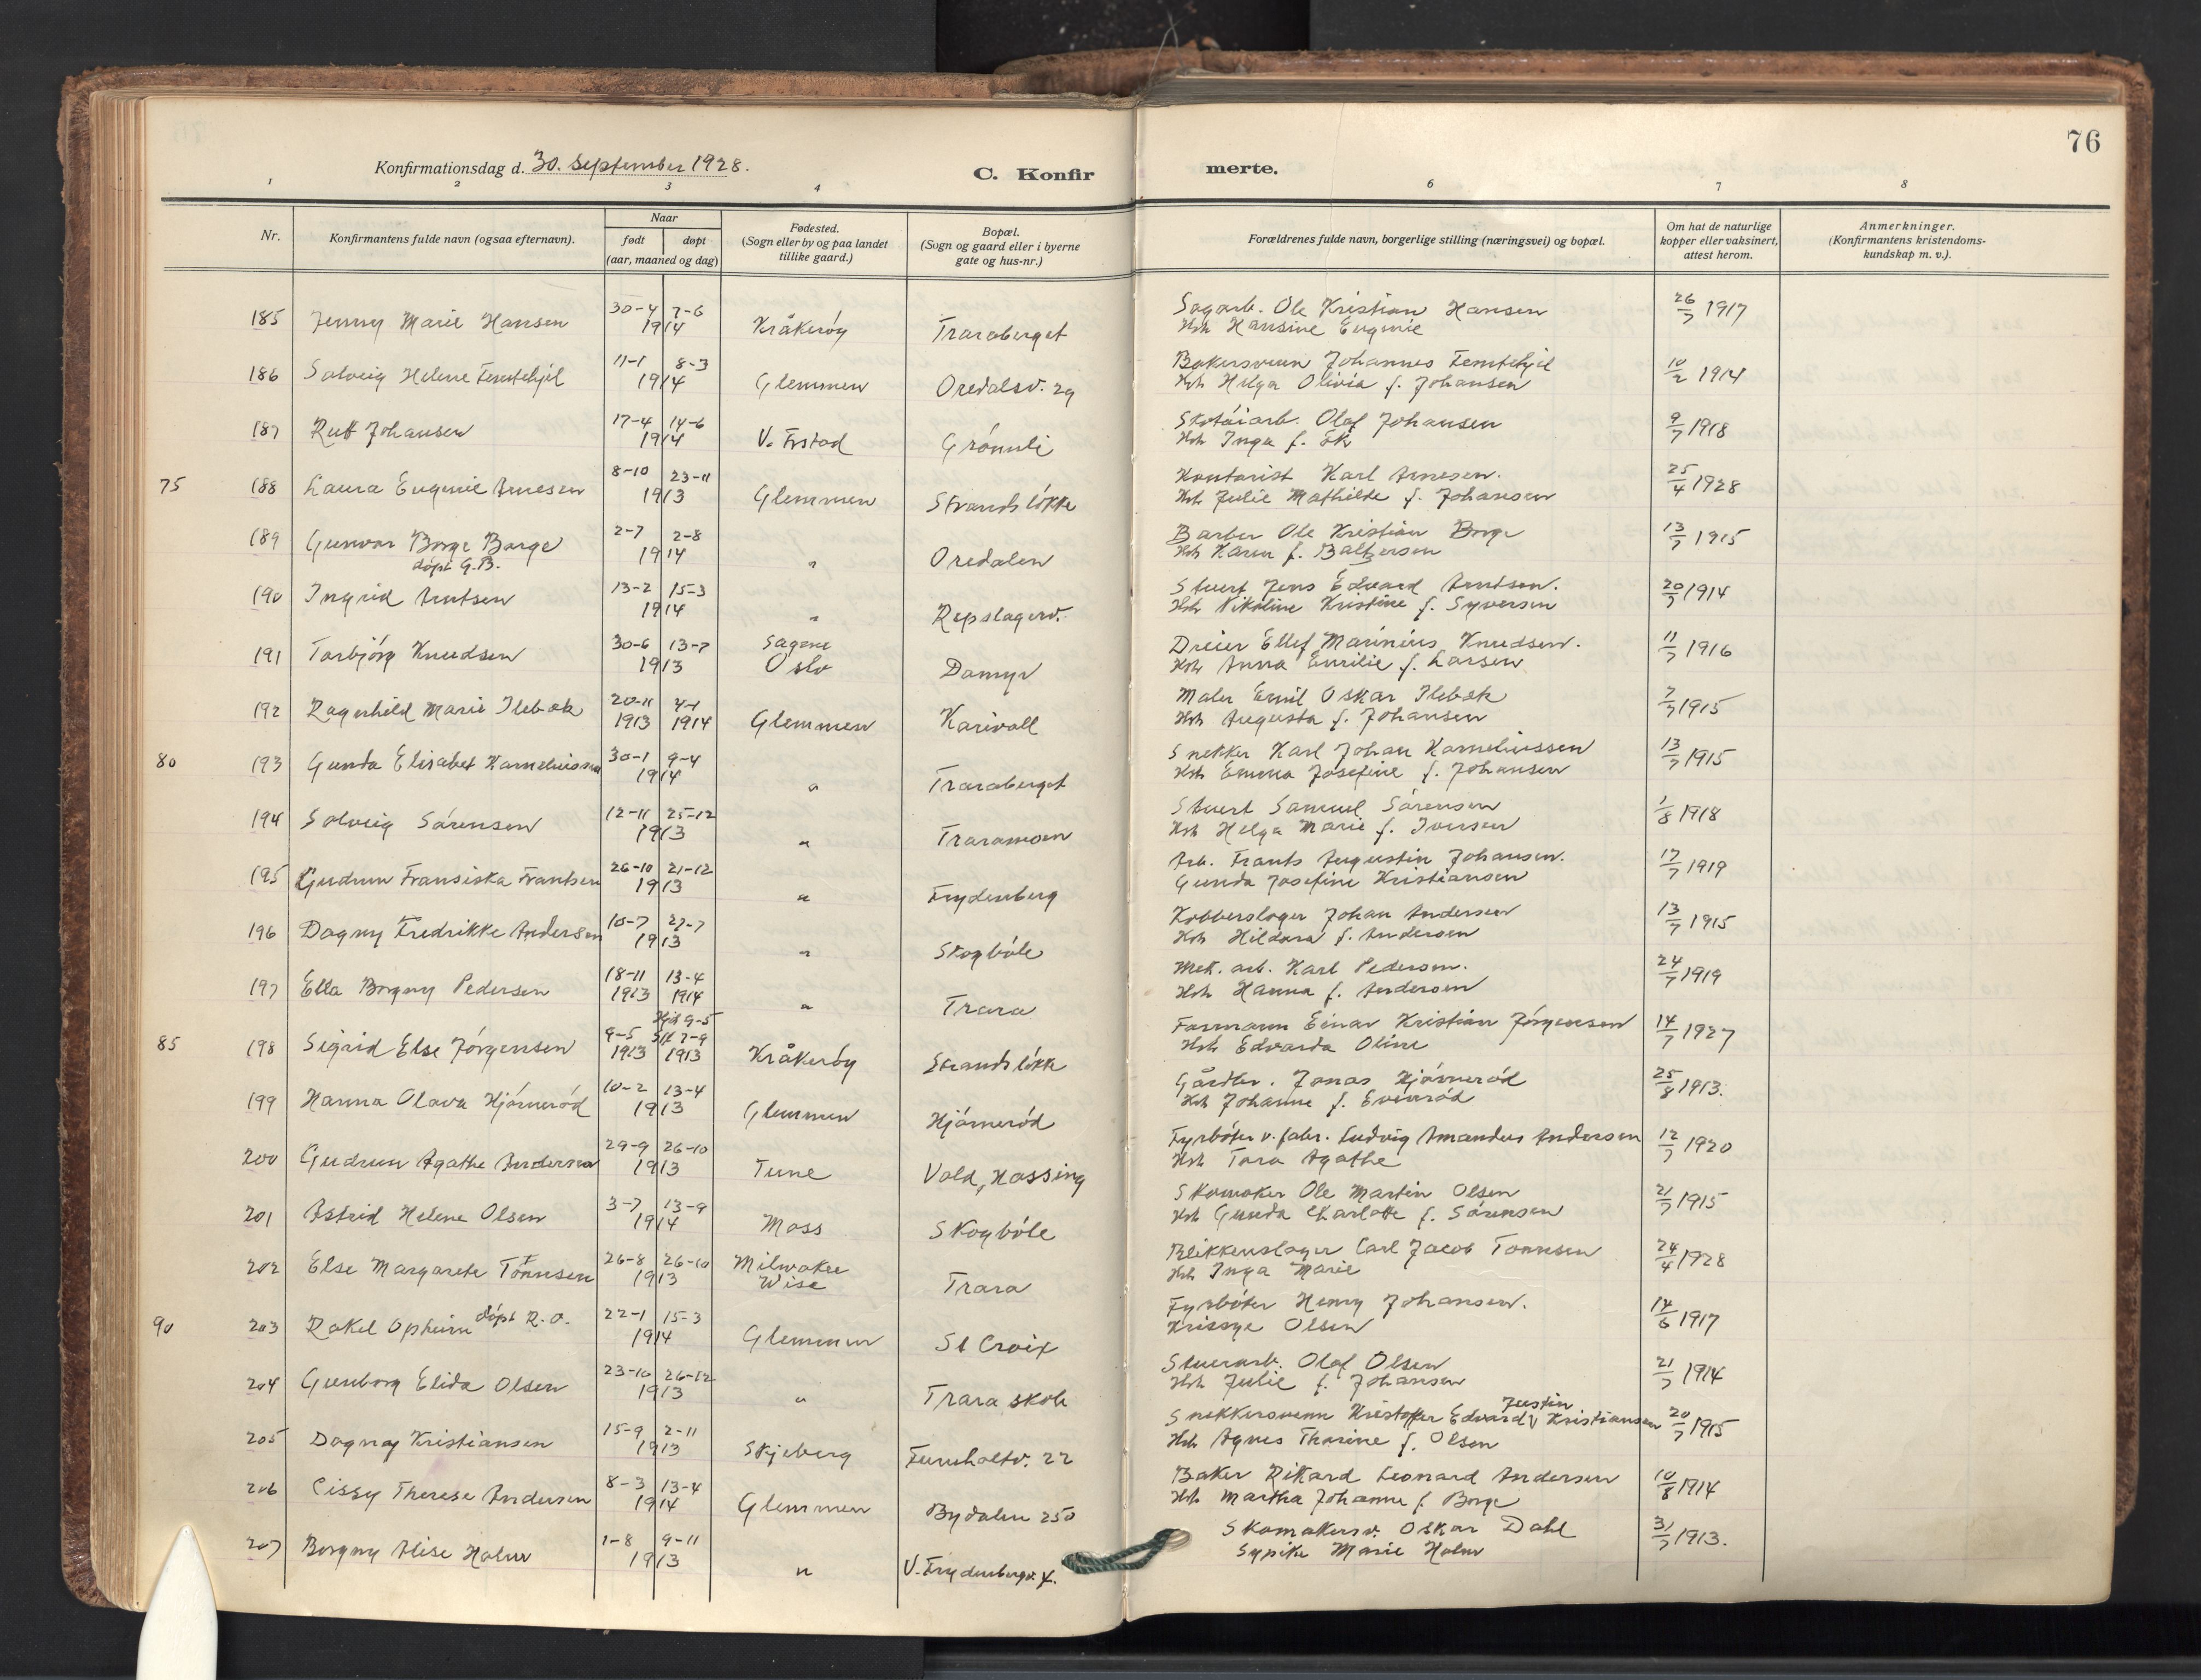 76
Konfirmationsdag d. 30. September 1928.
C. Konfirmerte.
1 2 3 4 6 7 8
Nr.
Konfirmantens fulde navn (ogsaa efternavn).
Naar
født døpt
(aar, maaned og dag)
Fødested.
(Sogn eller by og paa landet
tillike gaard.)
Bopæl.
(Sogn og gaard eller i byerne
gate og hus-nr.)
Forældrenes fulde navn, borgerlige stilling (næringsvei) og bopæl.
Om hat de naturlige
kopper eller vaksinert,
attest herom.
Anmerkninger.
(Konfirmantens kristendoms-
kundskap m. v.).
185 Jenny Marie Hansen 30-4 7-6 1914 Kråkerøy Traraberget Sagarb. Ole Kristian Hansen 26/7 1917
Hst Hansine Eugenie
186 Solveig Helene Femtehjel 11-1 8-3 1914 Glemmen Oredalsv. 29 Bakersvenn Johannes Femtehjel 10/2 1914
Hst Helga Olivia f. Johansen
187 Rutt Johansen 17-4 14-6 1914 V. Frstad Grønli Skotøiarb. Olaf Johansen 9/7 1918
Hst Inga f. Ek
75 188 Laura Eugenie Arnesen 8-10 23-11 1913 Glemmen Strandsløkke Kontorist Karl Arnesen. 25/4 1928
Hst Julie Mathilde f. Johansen
189 Gunvor Borge Borge 2-7 2-8 1914 " Oredalen Barber Ole Kristian Borge 13/7 1915
døpt G.B. Hst Karen f. Baltzersen
190 Ingrid Arntsen 13-2 15-3 1914 " Repslagerv. Stuert Jens Edvard Arntsen. 20/7 1914
Hst Nikoline Kristine f. Syversen
191 Torbjørg Knudsen 30-6 13-7 1913 Sagene Oslo Damyr Dreier Ellef Marinius Knudsen. 11/7 1916
Hst Anna Emilie f. Larsen
192 Ragnhild Marie Ilebæk 20-11 1913 4-1 1914 Glemmen Karivoll Maler Emil Oskar Ilebæk 7/7 1915
Hst Augusta f. Johansen
80 193 Gunda Elisabet Karneliussen 30-1 9-4 1914 " Traraberget Snekker Karl Johan Karneliussen 13/7 1915
Hst Emma Josefine f. Johansen
194 Solveig Sørensen 12-11 25-12 1913 " Traramoen Stuert Samuel Sørensen 1/8 1918
Hst Helga Marie f. Iversen
195 Gudrun Fransiska Frantsen 26-10 21-12 1913 " Frydenberg Arb. Frants Augustin Johansen. 17/7 1919
Gunda Josefine Kristiansen
196 Dagny Fredrikke Andersen 10-7 27-7 1913 " Skogbøle Kobberslager Johan Andersen 13/7 1915
Hst Hildora f. Andersen
197 Ella Borgny Pedersen 18-11 1913 13-4 1914 " Trara Mek. arb. Karl Pedersen. 24/7 1919
Hst Hanna f. Andersen
85 198 Sigrid Else Jørgensen 9-5 1913 Hjd 9-5 Stf 7-9 1913 Kråkerøy Strandsløkke Formann Einar Kristian Jørgensen 14/7 1927
Hst Edvarda Oline
199 Hanna Olava Hjørnerød 10-2 13-4 1913 Glemmen Hjørnerød Gårdbr. Jonas Hjørnerød 25/8 1913.
Hst Johanne f. Evenrød
200 Gudrun Agathe Andersen 29-9 26-10 1913 Tune Vold, Hassing Fyrbøter v. fabr. Ludvig Amandus Andersen 12/7 1920
Hst Tora Agathe
201 Astrid Helene Olsen 3-7 13-9 1914 Moss Skogbøle Skomaker Ole Martin Olsen 21/7 1915
Hst Gunda Charlotte f. Sørensen
202 Else Margarete Tönnsen 26-8 26-10 1913 Milwakee Wise Trara Blikkenslager Carl Jacob Tonnesen 24/4 1928
Hst Inga Marie
90 203 Rakel Opheim døpt R.O. 22-1 15-3 1914 Glemmen St Croix Fyrbøter Henry Johansen. 14/6 1917
Krissye Olsen
204 Gunborg Elida Olsen 23-10 26-12 1913 " Trara skole Stuerarb. Olaf Olsen 21/7 1914
Hst Julie f. Johansen
205 Dagny Kristiansen 15-9 2-11 1913 Skjeberg Furuholtv. 22 Snekkersvenn Kristoffer Edvard Justin Kristiansen 20/7 1915
Hst Agnes Thorine f. Olsen
206 Cissy Therese Andersen 8-3 13-4 1914 Glemmen Bydalen 250 Baker Rikard Leonard Andersen 10/8 1914
Hst Martha Johanne f. Borge
207 Borgny Alise Holm 1-8 9-11 1913 " V. Frydenbergv. 4. Skomakersv. Oskar Dahl 31/7 1913.
Sypike Marie Holm